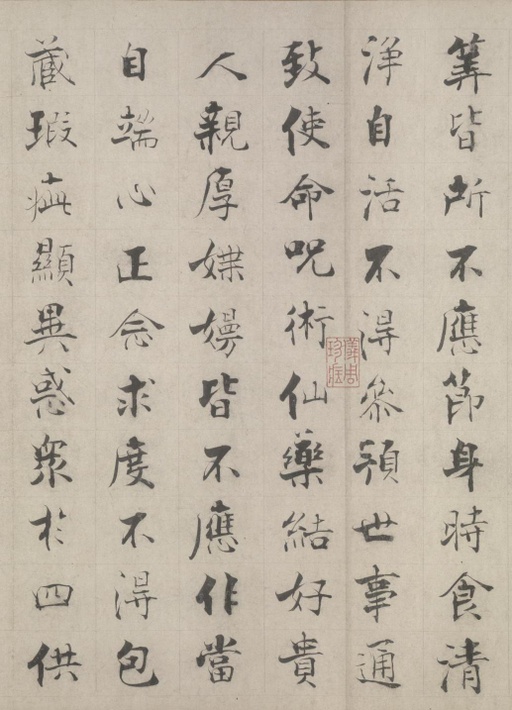 筭皆所不應節身時食清
浄自活不得叅預世事通
致使命呪術仙藥結好貴
人親厚媟嫚皆不應作當
自端心正念求度不得包
藏瑕疵顯異惑衆於四供
儀周珍藏